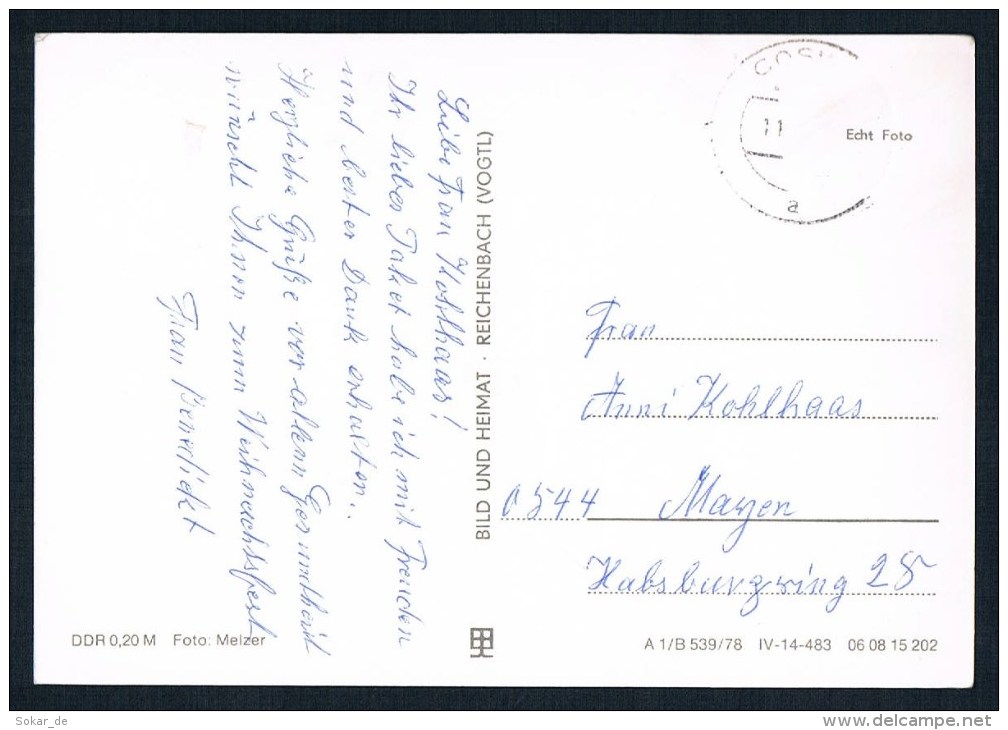 Liebe Frau Kohlhaas!
Ihr liebes Paket habe ich mit Freuden
und bester Dank erhalten.
Herzliche Grüße vor allem Gesundheit
wünscht Ihnen zum Weihnachtsfest
Frau Benedickt
BILD UND HEIMAT · REICHENBACH (VOGTL)
11
a
Echt Foto
Frau
Anni Kohlhaas
0544 Mayen
Habsburgring 28
DDR 0,20 M Foto: Melzer
A 1/B 539/78 IV-14-483 06 08 15 202
Sokar_de
http://www.delcampe.net